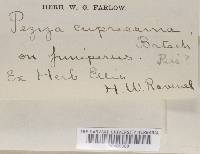 HERB. W. G. FARLOW.
Peziza cupressina
Batsch
on Juniperus. Pers?
Ex Herb Ellis
H. W. Ravenel